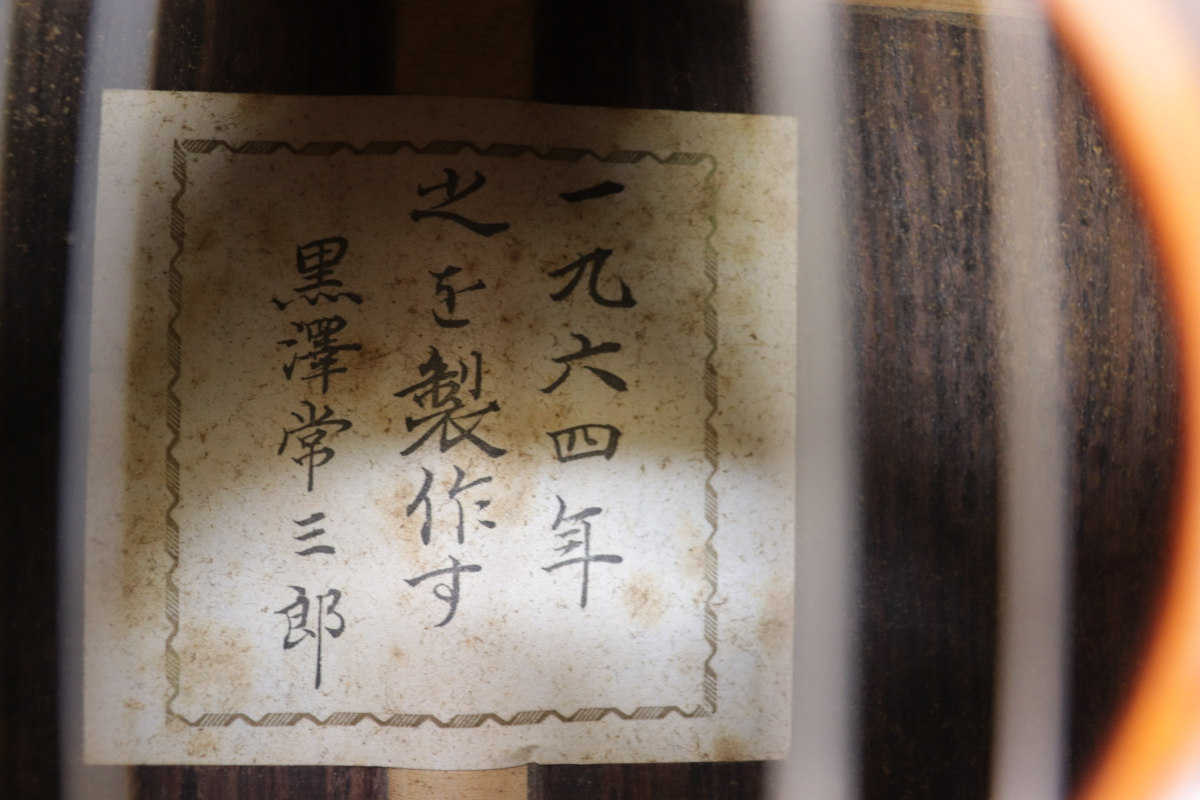 一九六四年
之を製作す
黒澤常三郎